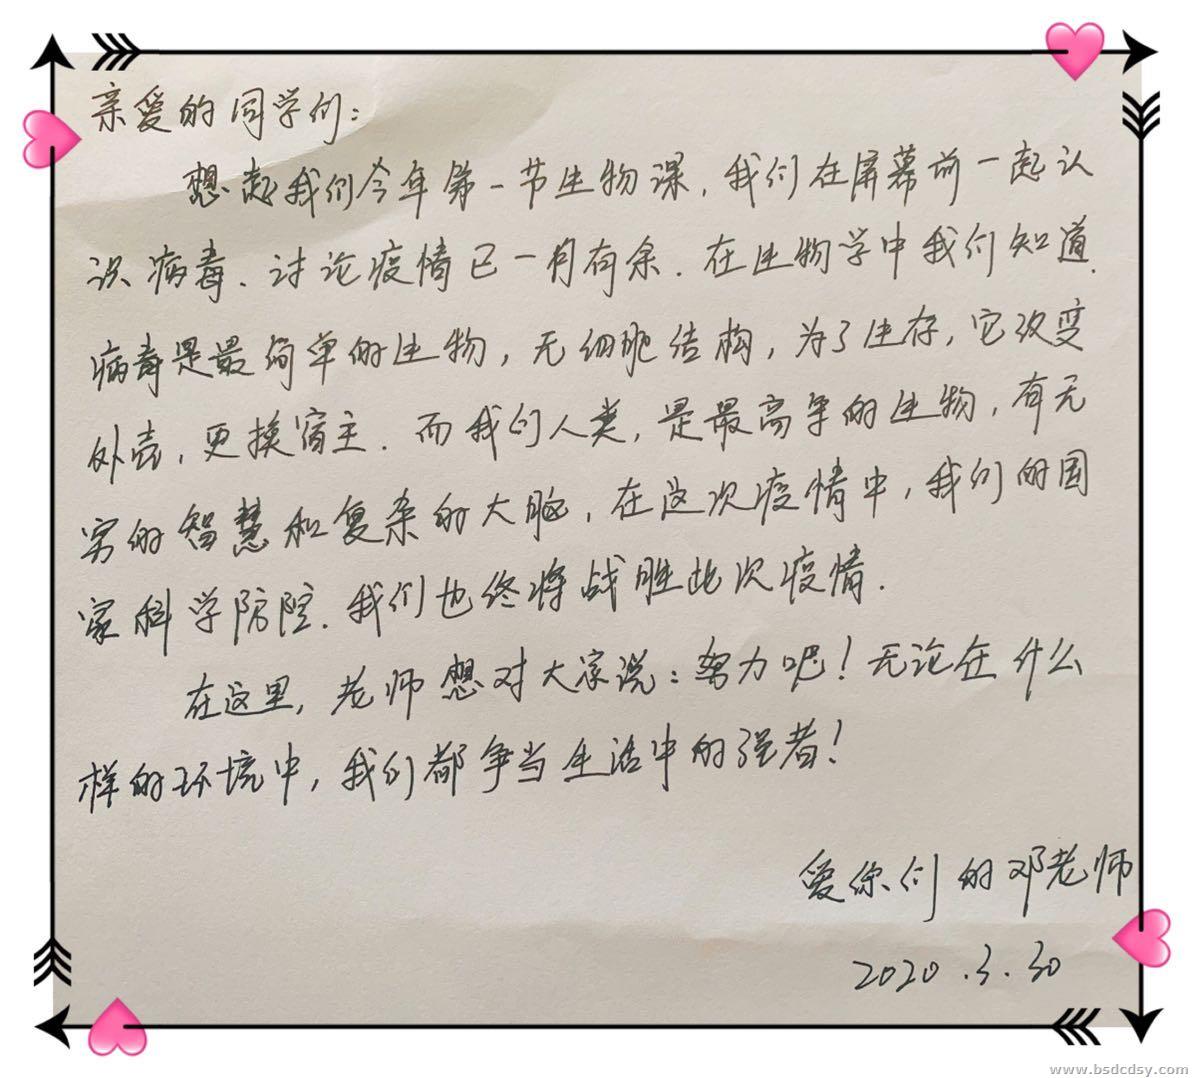 亲爱的同学们：
想起我们今年第一节生物课，我们在屏幕前一起认
识病毒、讨论疫情已一月有余．在生物学中我们知道．
病毒是最简单的生物，无细胞结构，为了生存，它改变
外壳，更换宿主．而我们人类，是最高等的生物，有无
穷的智慧和复杂的大脑，在这次疫情中，我们的国
家科学防控．我们也终将战胜此次疫情．
在这里，老师想对大家说：努力吧！无论在什么
样的环境中，我们都争当生活中的强者！
爱你们的邓老师
2020.3.30
www.bsdcdsy.com